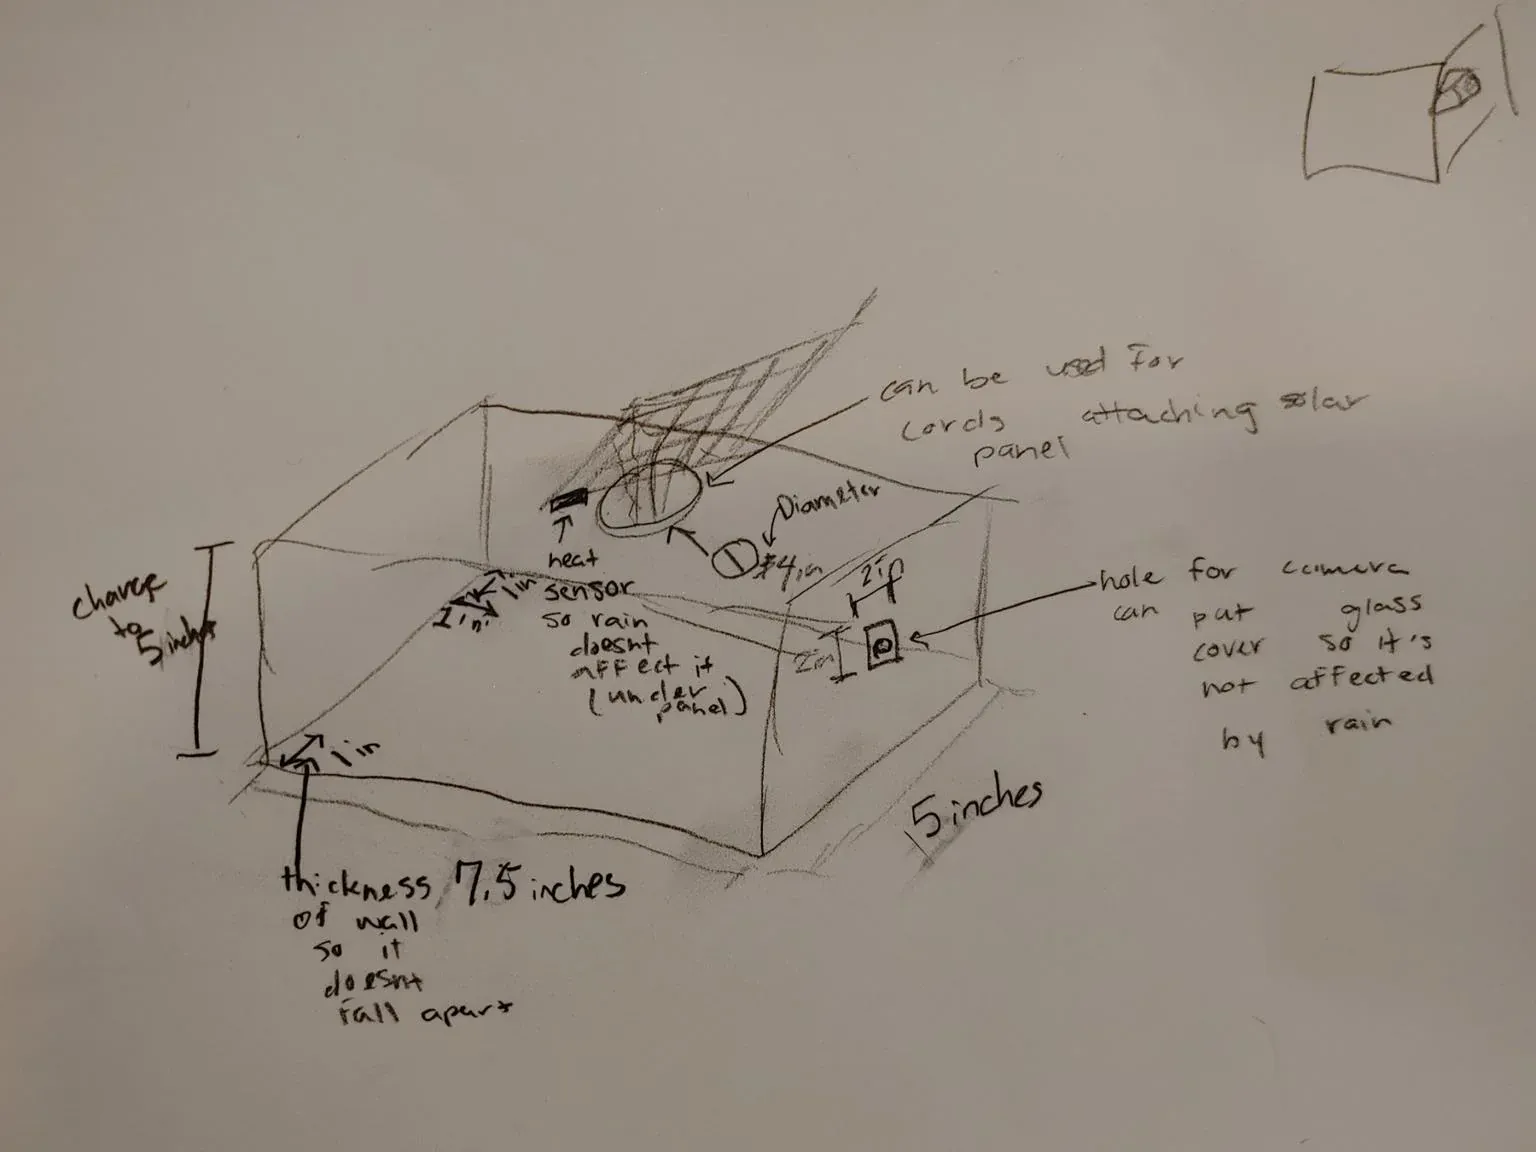 can be used for
cords attaching solar
panel
Diameter
4in
heat
sensor
so rain
doesnt
affect it
(under
panel)
1in
1in.
2in
2in
hole for camera
can put glass
cover so it's
not affected
by rain
change
to
5 inches
1in
5 inches
7.5 inches
thickness
of wall
so it
doesnt
fall apart